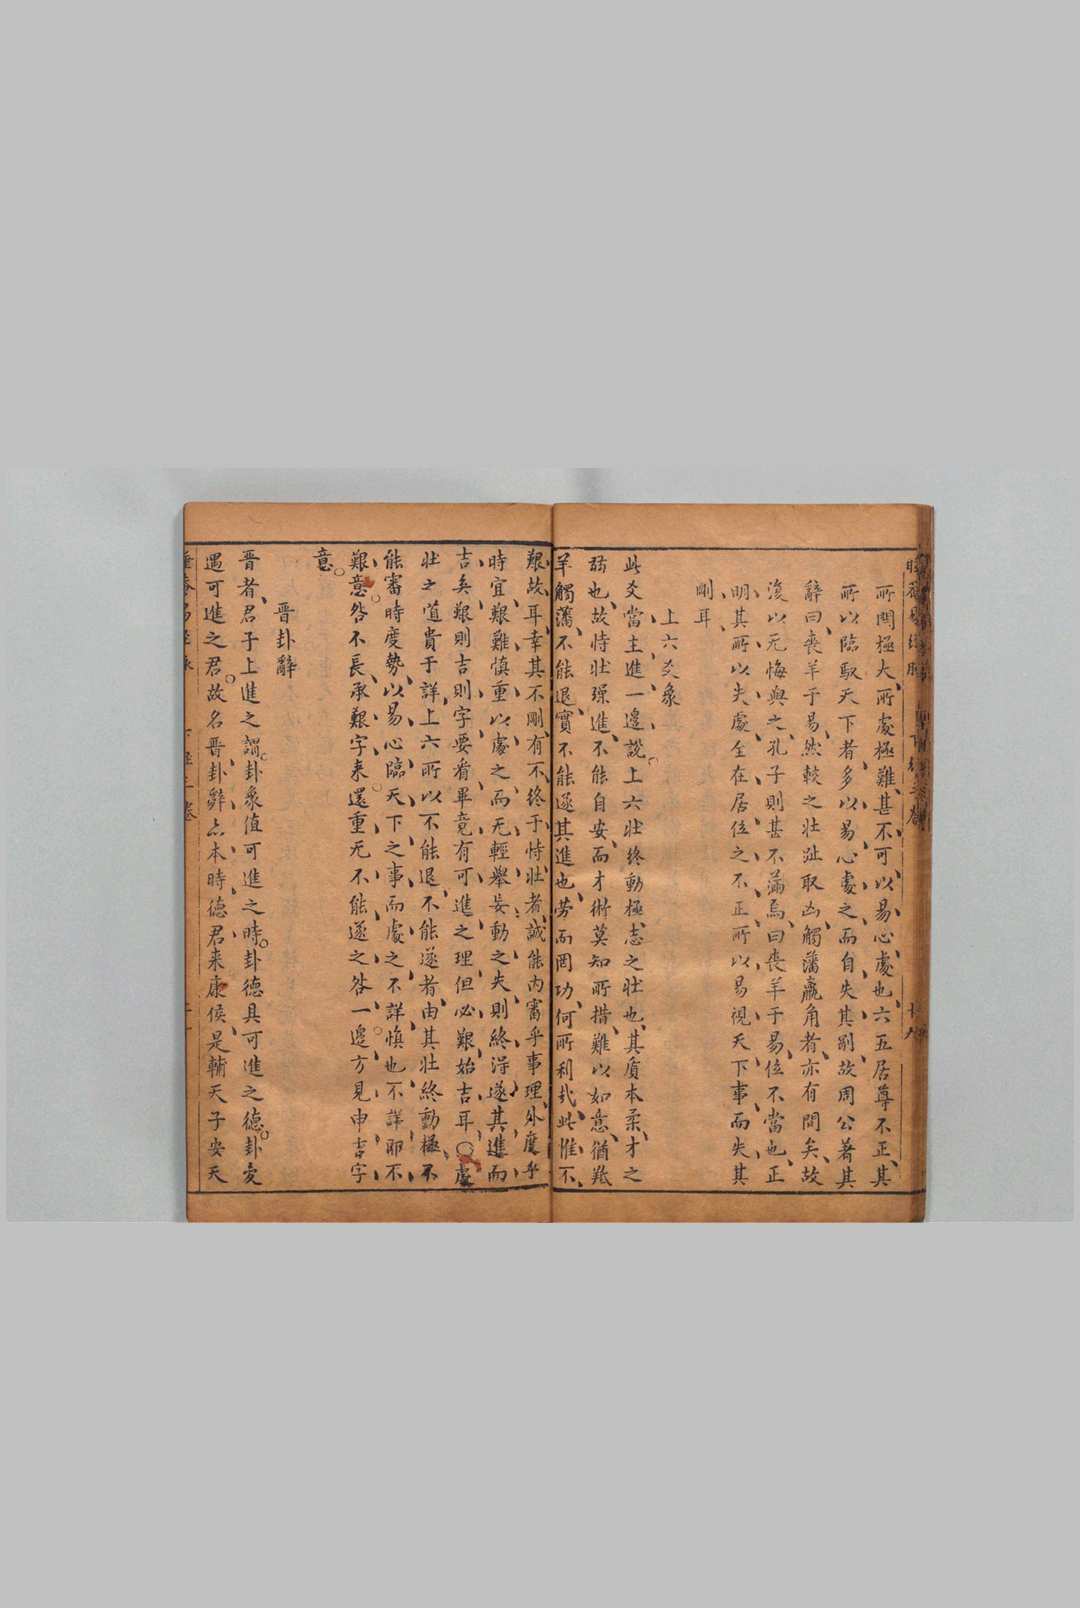 所関極大、所處極難、甚不可以易心處也、六五居尊不正、其
所以臨馭天下者、多以易心處之、而自失其剛、故周公著其
辭曰、喪羊于易、然較之壯趾取凶、觸藩羸角者、亦有間矣、故
復以无悔與之、孔子則甚不滿焉、曰喪羊于易、位不當也、正
明其所以失處、全在居位之不正、所以易視天下事、而失其
剛耳、
上六爻象
此爻當主進一邊說。上六壯終動極、志之壯也、其質本柔、才之
弱也、故恃壯躁進、不能自安、而才術莫知所措、難以如意、猶羝
羊觸藩、不能退、實不能遂其進也、労而罔功、何所利哉、此惟不
艱故耳、幸其不剛、有不終于恃壯者、誠能內審乎事理、外度乎
時宜、艱難慎重以處之、而无輕舉妄動之失、則終得遂其進而
吉矣、艱則吉、則字要看、畢竟有可進之理、但必艱始吉耳、○處
壯之道貴于詳、上六所以不能退、不能遂者、由其壯終動極、不
能審時度勢、以易心臨天下之事、而處之不詳慎也、不詳即不
艱意。咎不長、承艱字来。還重无不能遂之咎一邊。方見申吉字
意。
晉卦辭
晉者、君子上進之謂。卦象值可進之時。卦德具可進之德。卦变
遇可進之君。故名晉、卦辭亦本時德君来、康侯、是輔天子安天